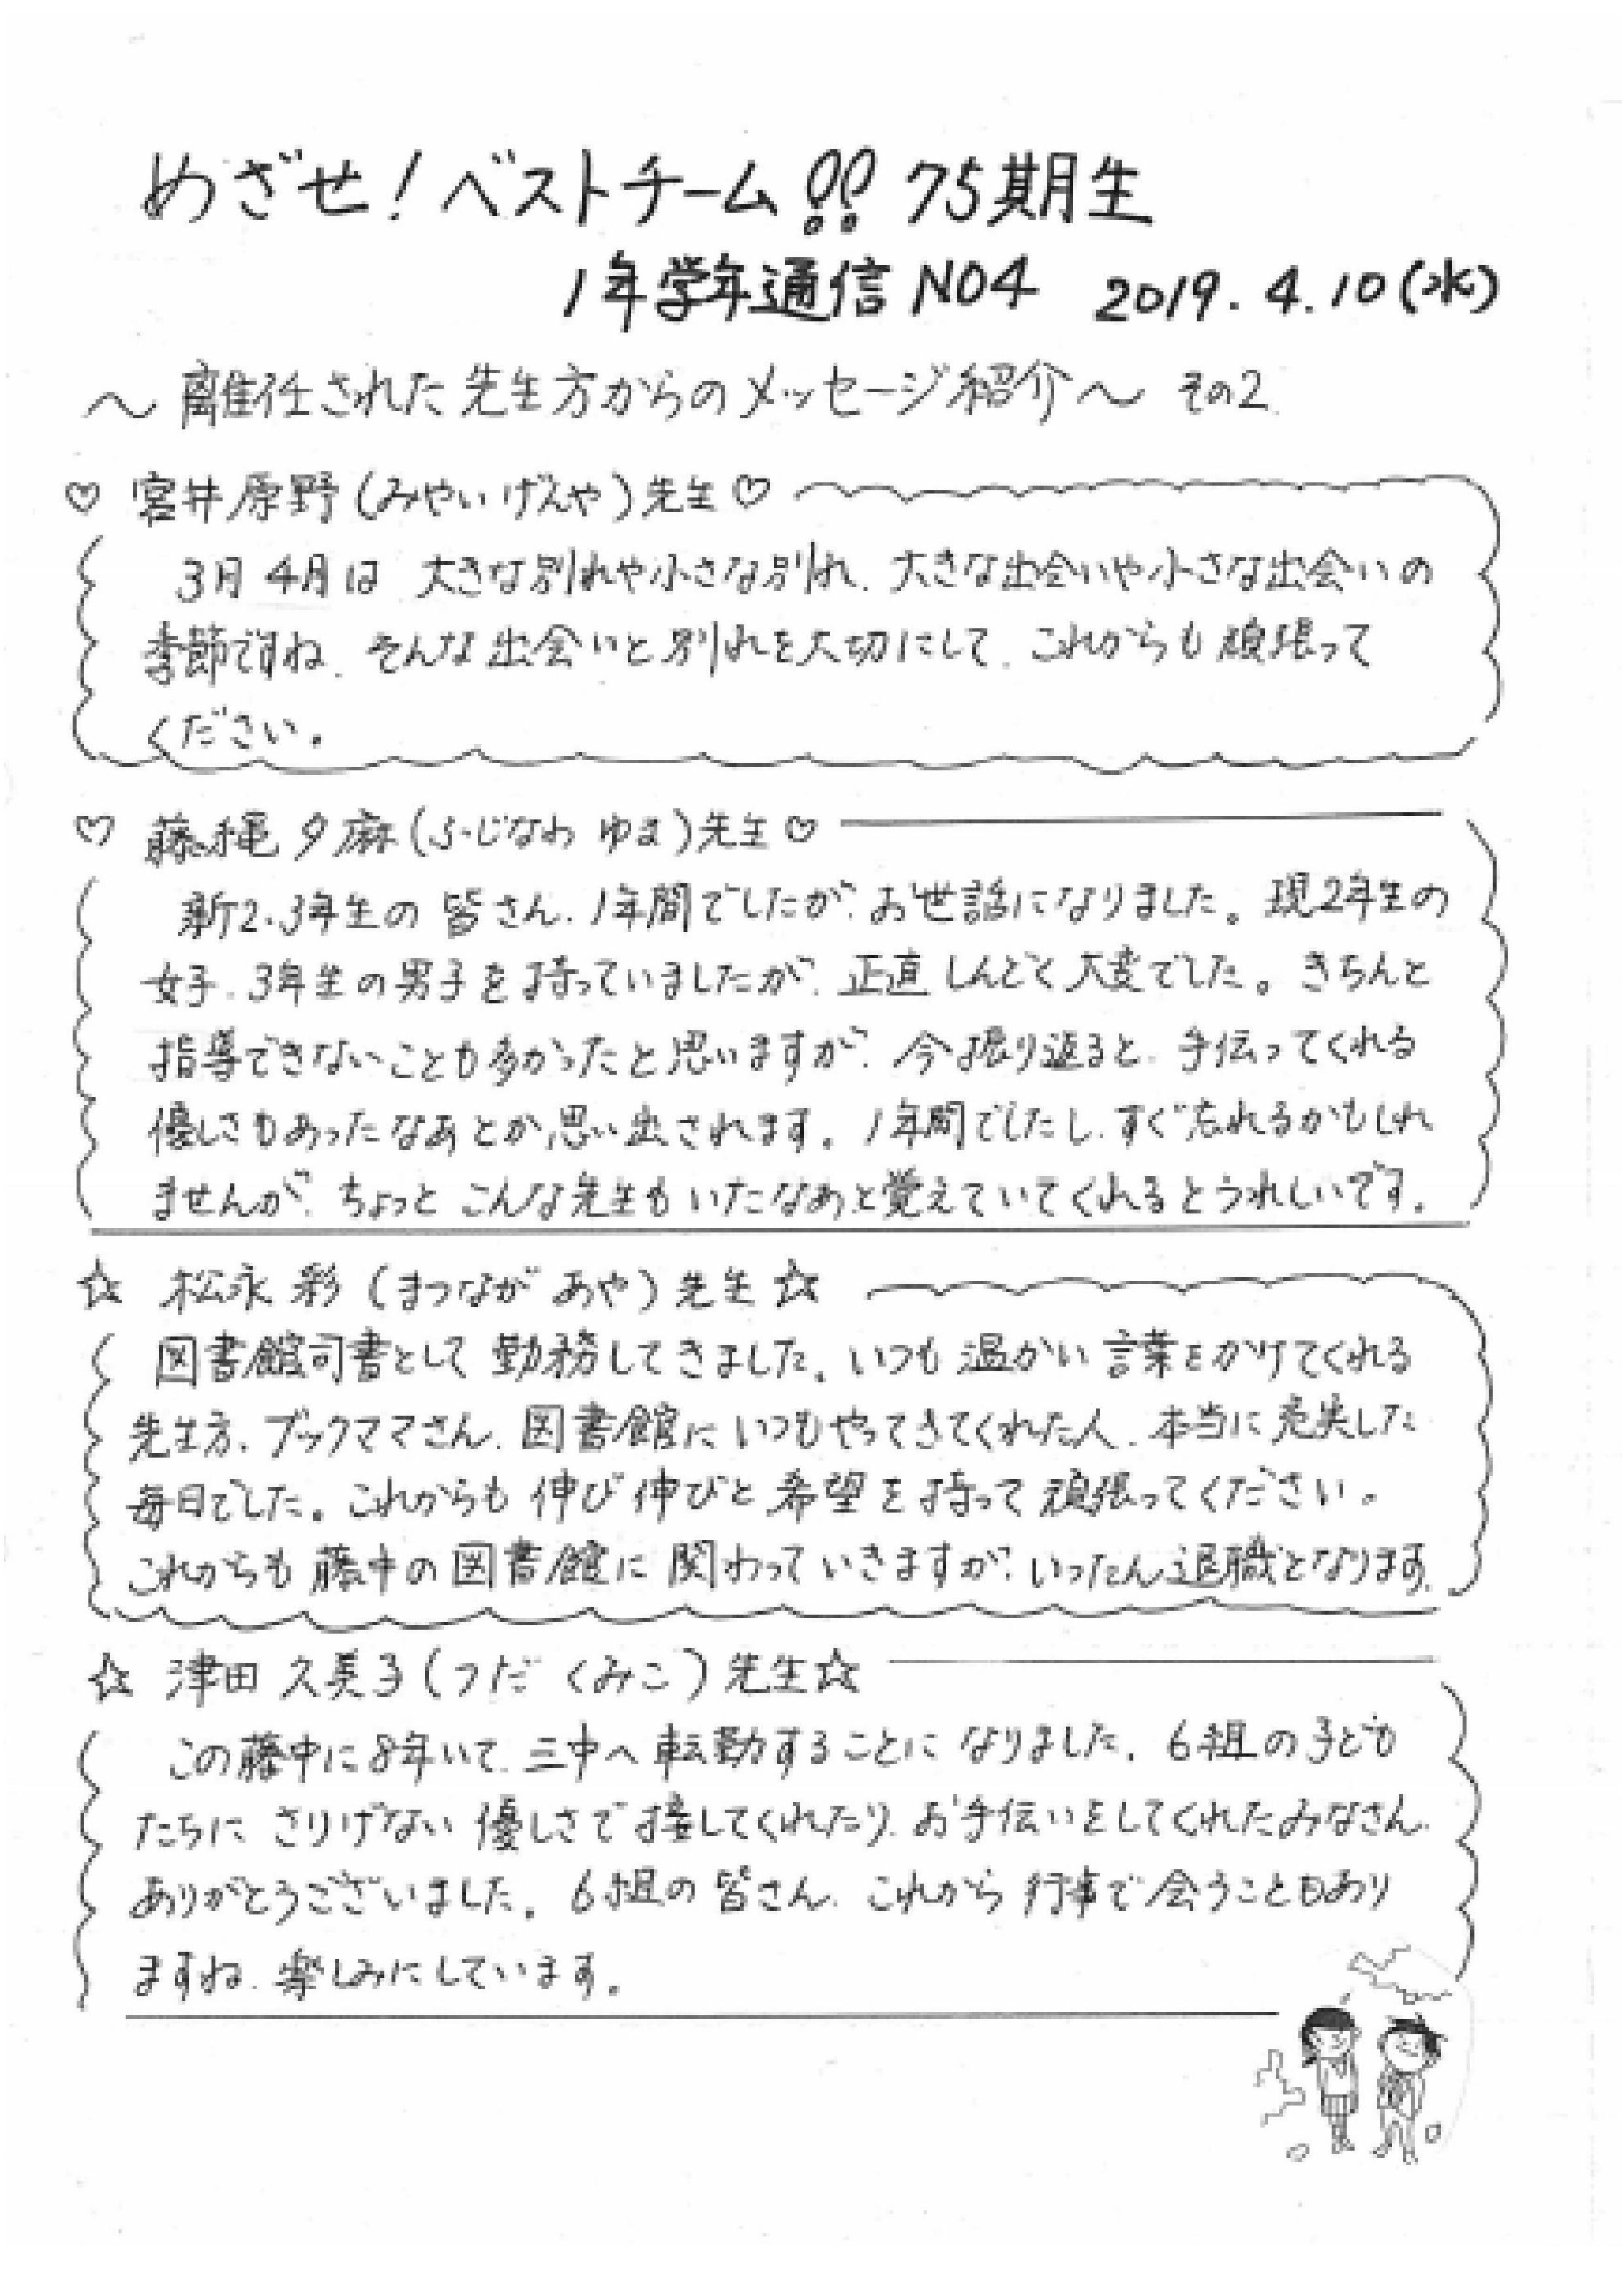 めざせ！ベストチーム!! 75期生
1年学年通信 NO4 2019.4.10(水)
〜離任された先生方からのメッセージ紹介〜 その2
♡ 宮井原野(みやいげんや)先生♡
3月4月は 大きな別れや小さな別れ、大きな出会いや小さな出会いの
季節ですね、そんな出会いと別れを大切にして、これからも頑張って
ください。
♡ 藤縄夕麻(ふじなわ ゆま)先生♡
新2、3年生の皆さん、1年間でしたが、お世話になりました。現2年生の
女子、3年生の男子を持っていましたが、正直しんどく大変でした。きちんと
指導できないことも多かったと思いますが、今振り返ると、手伝ってくれる
優しさもあったなあとか思い出されます。1年間でしたし、すぐ忘れるかもしれ
ませんが、ちょっとこんな先生もいたなあと覚えていてくれるとうれしいです。
☆ 松永彩(まつながあや)先生☆
図書館司書として勤務してきました。いつも温かい言葉をかけてくれる
先生方、ブックママさん、図書館にいつもやってきてくれた人、本当に充実した
毎日でした。これからも伸び伸びと希望を持って頑張ってください。
これからも藤中の図書館に関わっていきますが、いったん退職となります。
☆ 津田久美子(つだ くみこ)先生☆
この藤中に8年いて、三中へ転勤することになりました。6組の子ども
たちにさりげない優しさで接してくれたり、お手伝いをしてくれたみなさん、
ありがとうございました。6組の皆さん、これから行事で会うこともあり
ますね、楽しみにしています。